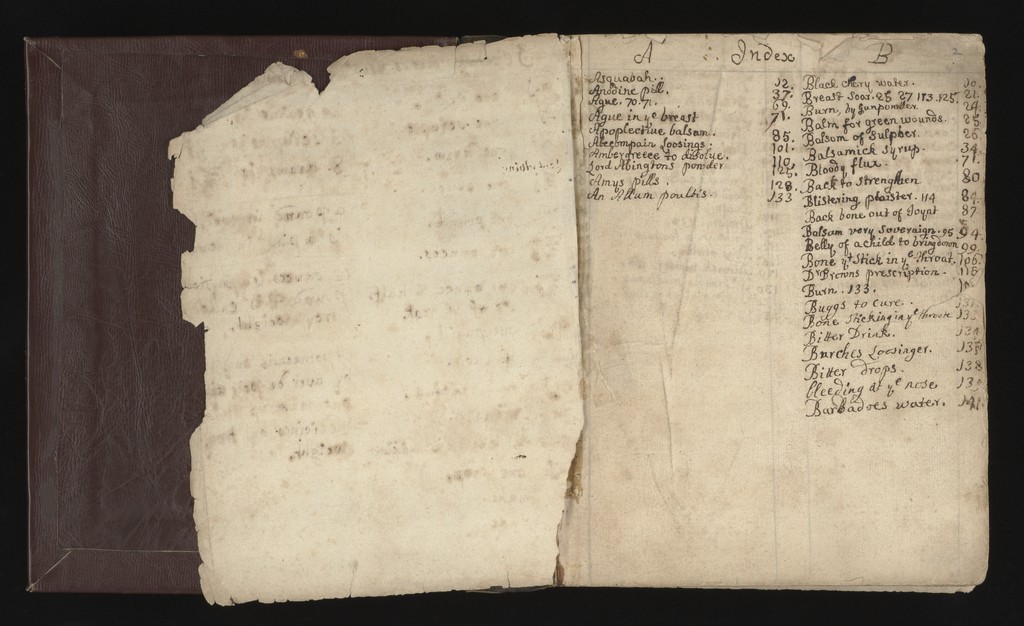 A Index B
2
Asquabah. 12.
Anodine pill. 37.
Ague. 70. 71. 69.
Ague in yᵉ breast 71.
Apoplective balsam. 85.
Accompain Loosings. 101.
Ambergreece to disolve. 110.
Lord Abingtons powder 125.
Amys pills. 128.
An Allum poultis. 133
Black chery water. 10.
Breast soar. 25 27 113. 125. 21.
Burn, by Gunpowder 24.
Balm for green wounds. 25
Balsom of Sulpher. 26
Balsamick Syrup. 34.
Bloody flux. 71.
Back to strengthen 80
Blistering plaister. 114
Back bone out of Joynt 87
Balsam very Soveraign. 95 94
Belly of a child to bring down 99.
Bone yᵗ Stick in yᵉ throat. 106.
Dʳ Browns prescription. 115
Burn. 133.
Buggs to cure.
Bone Sticking in yᵉ throate
Bitter Drink. 134
Burches Loosinger.
Bitter drops. 138
bleeding at yᵉ nose
Barbadoes water. 141.